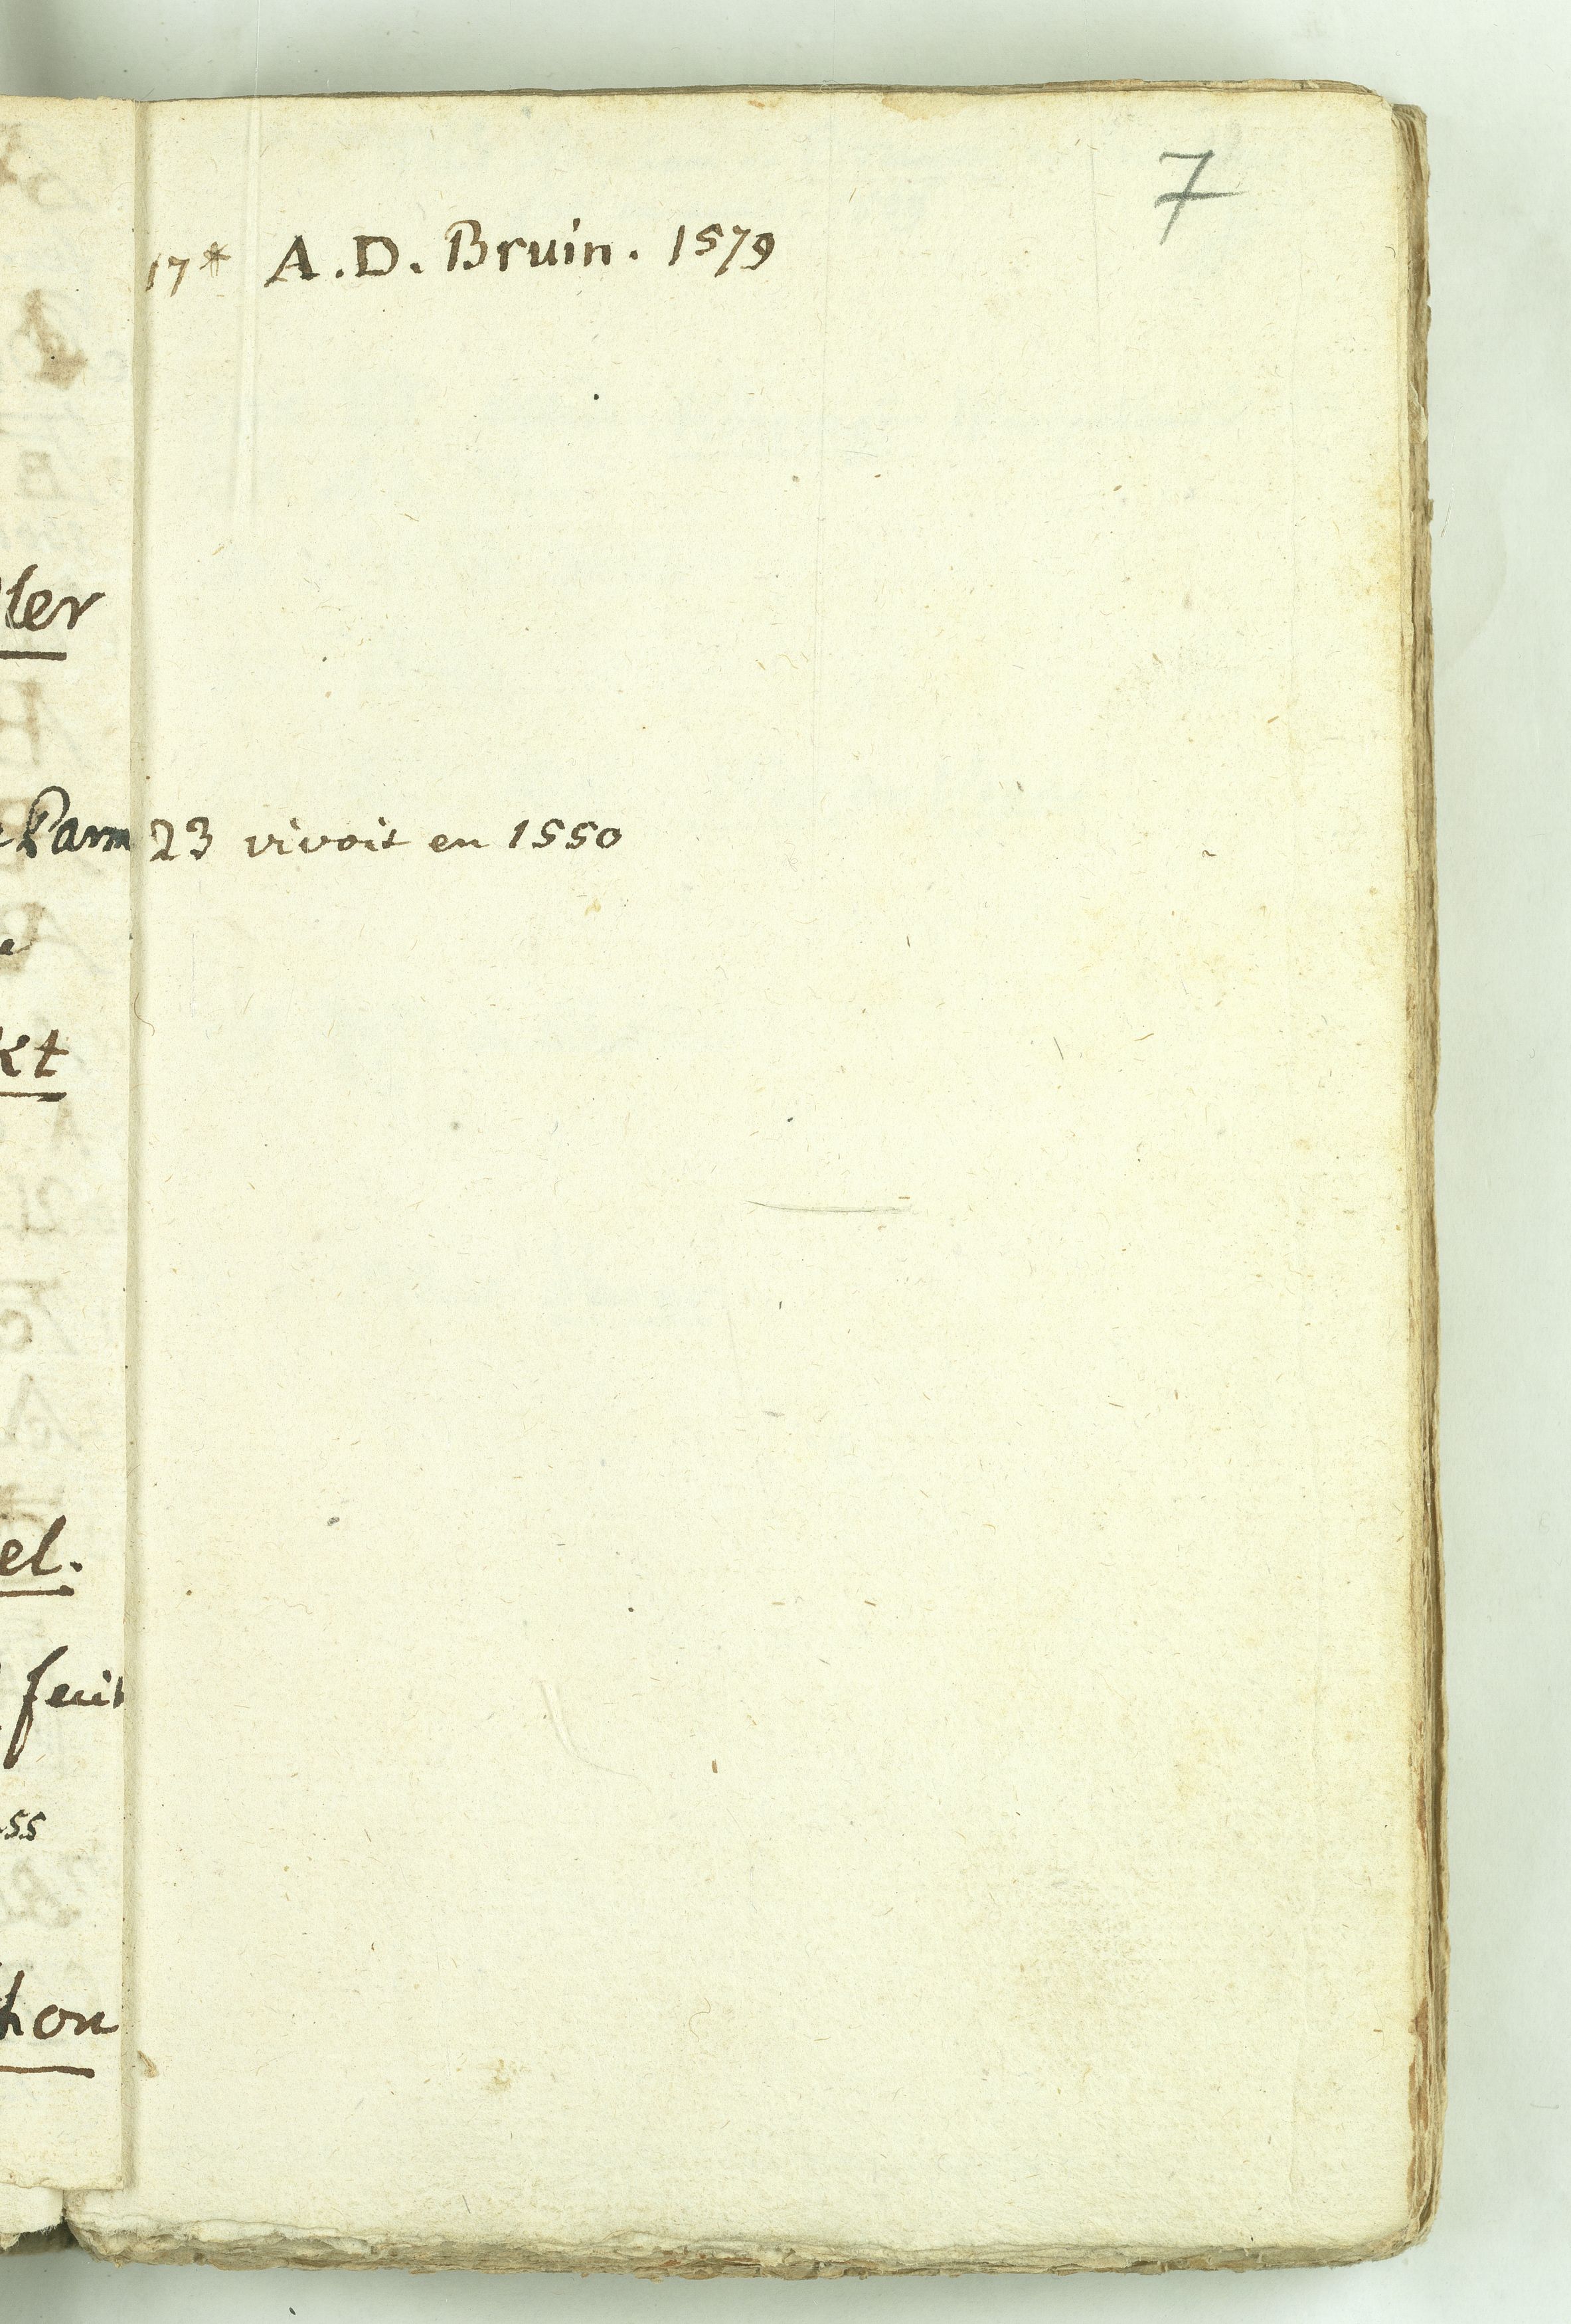 7
17* A.D. Bruin. 1579
ler
Parm
23 vivoit en 1550
kt
el.
feuil
55
hon